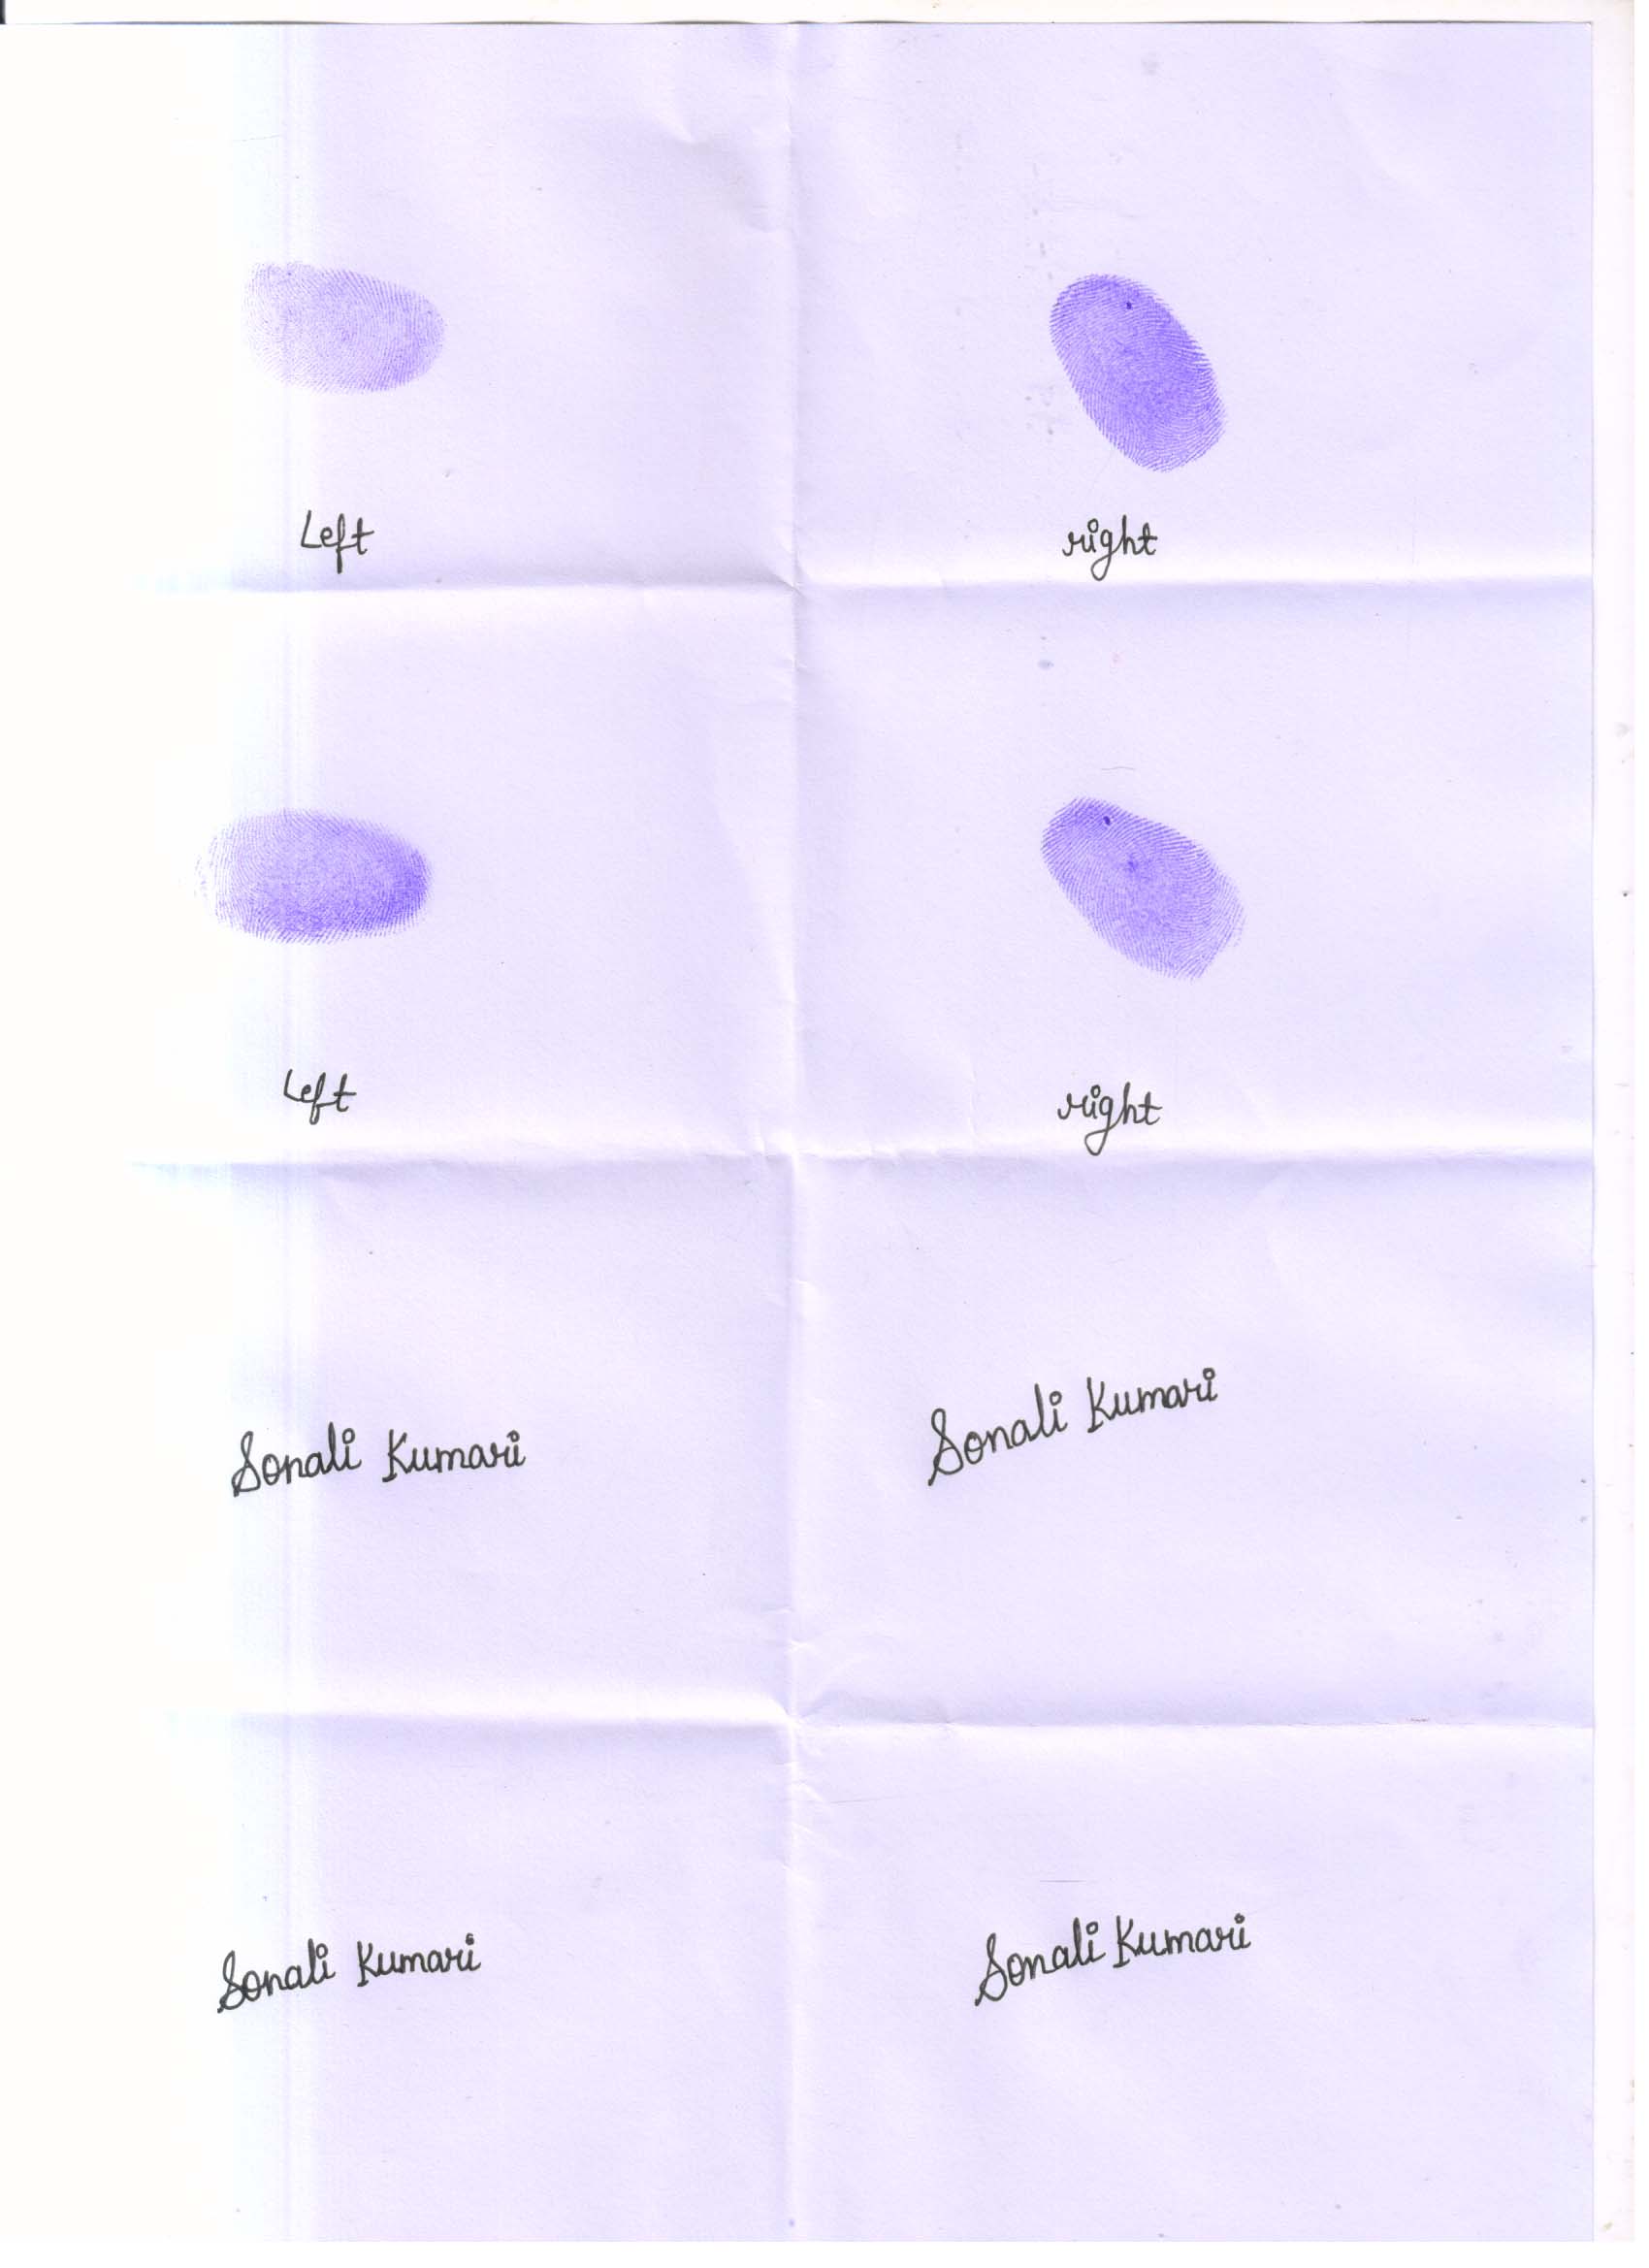 Left
right
Left
right
Sonali Kumari
Sonali Kumari
Sonali Kumari
Sonali Kumari